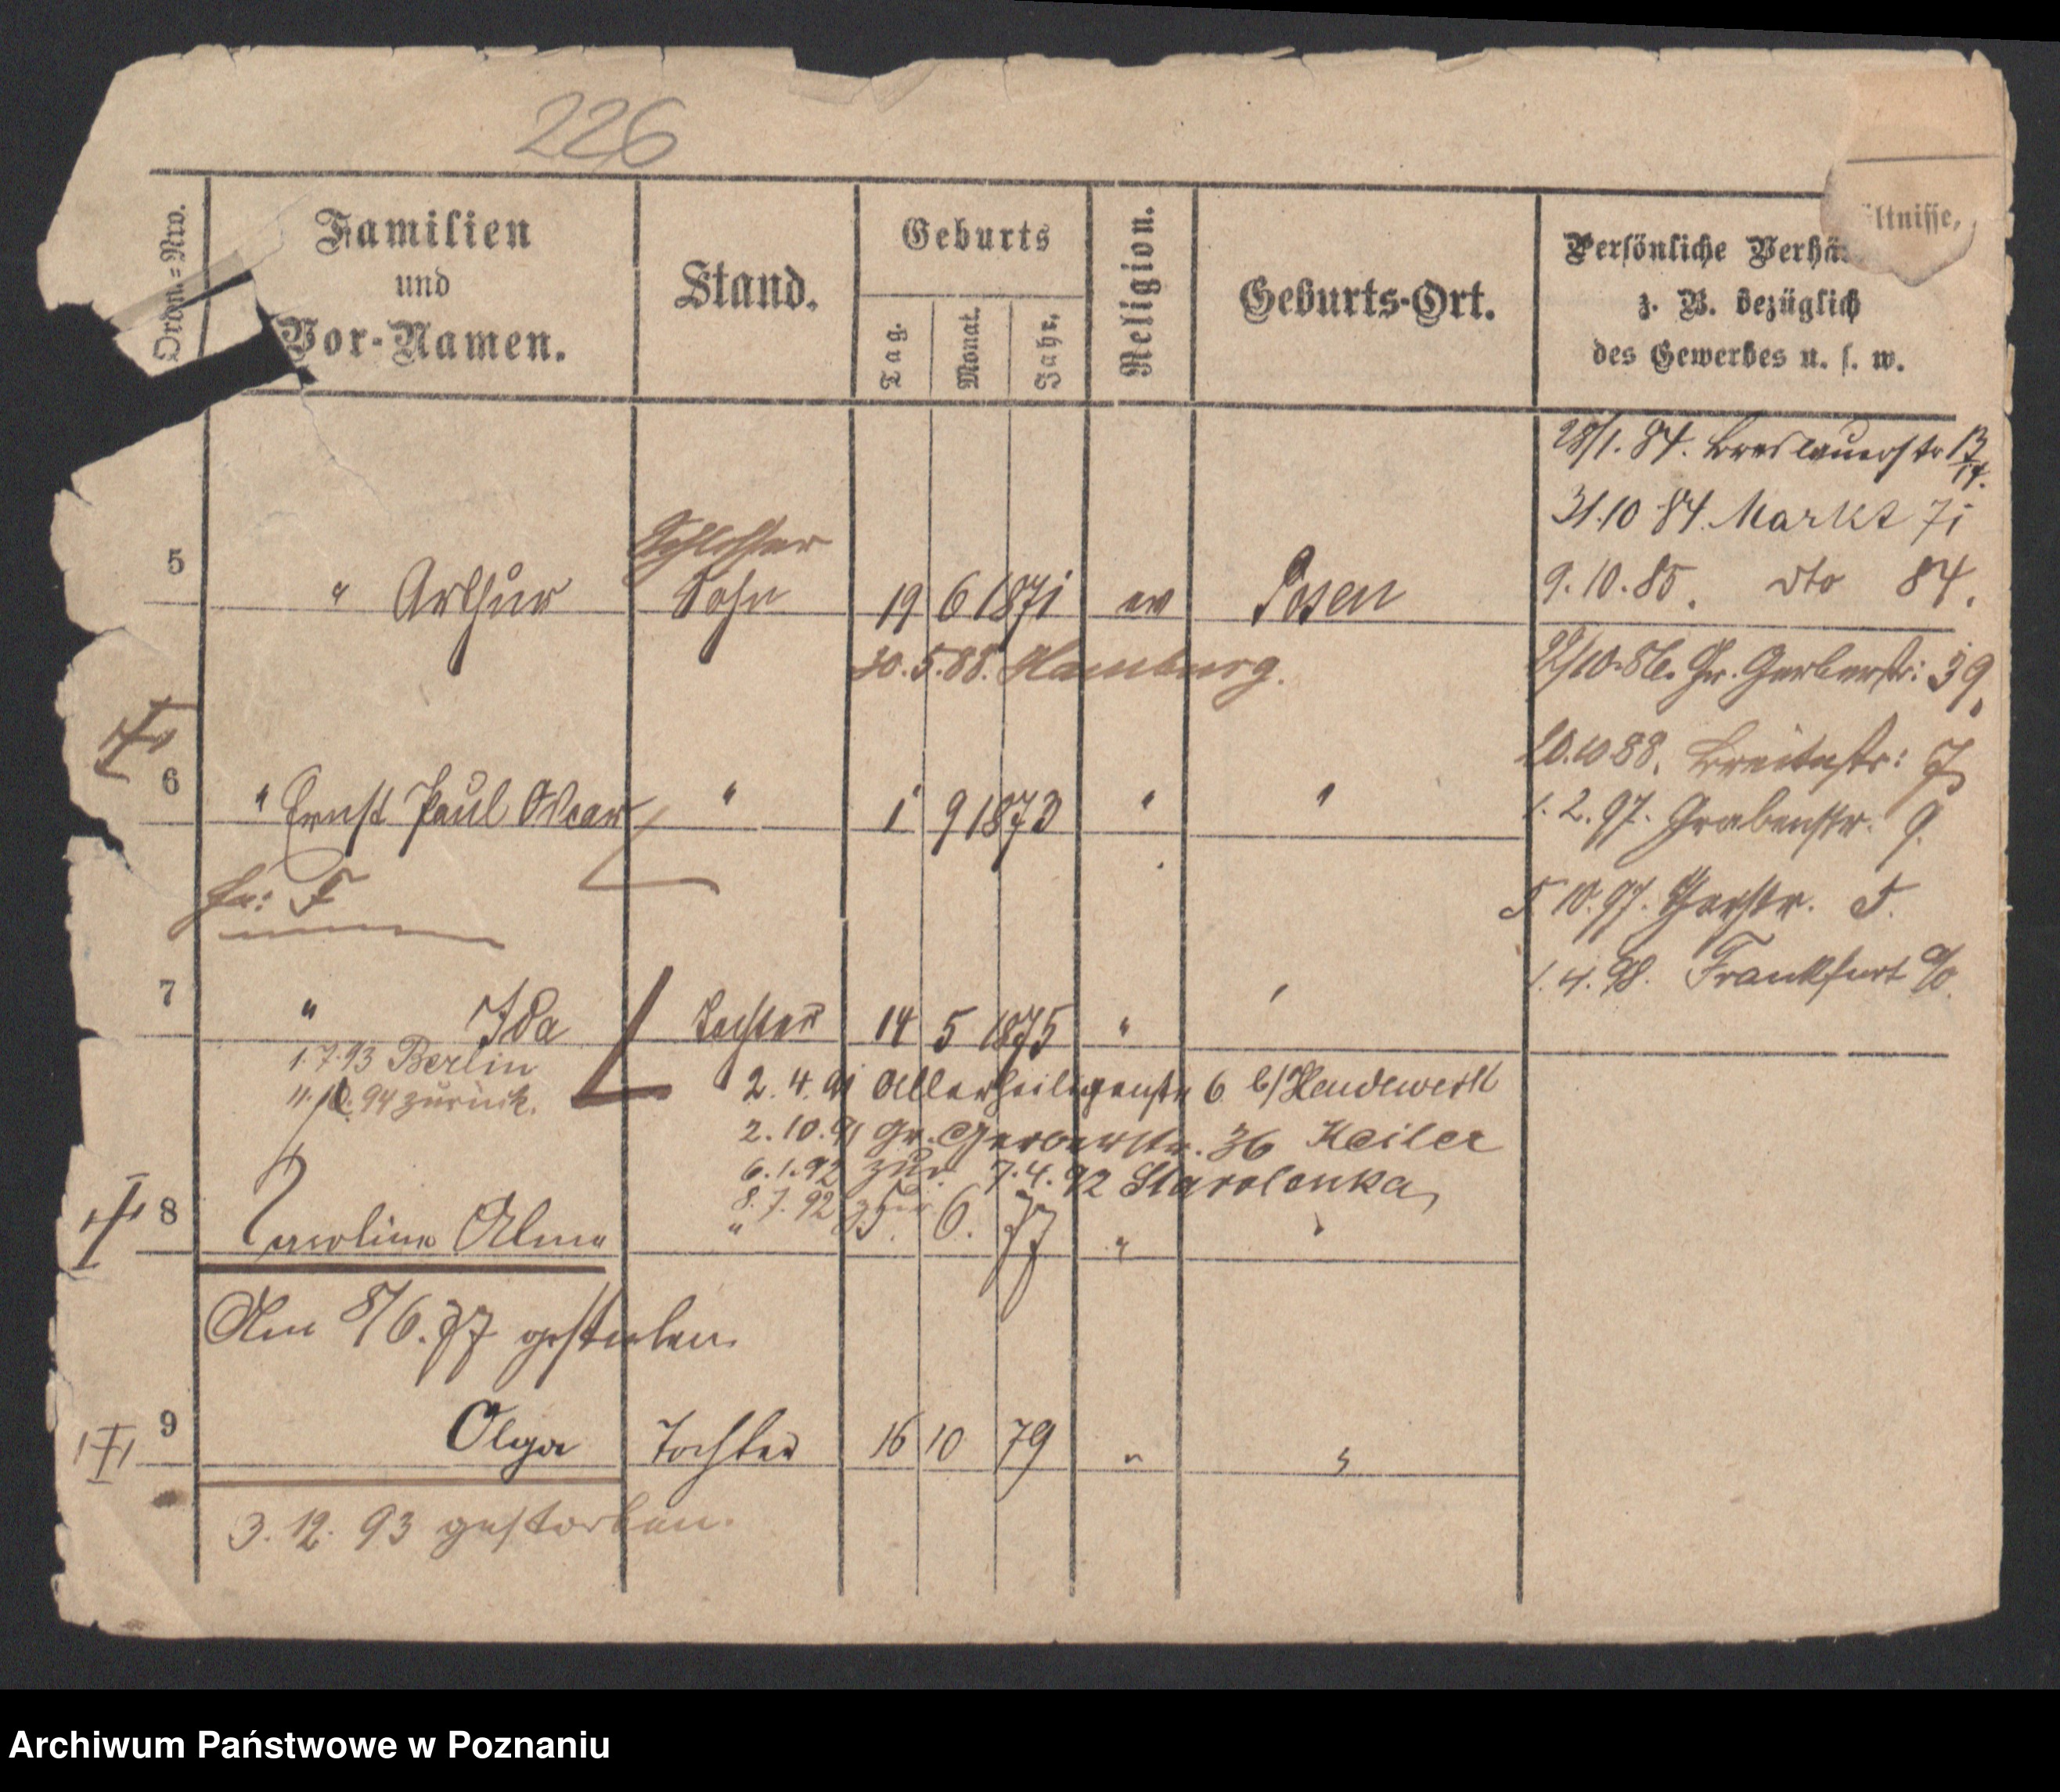 226
Ordn.=Nro.
Familien
und
Vor-Namen.
Stand.
Geburts
Tag.
Monat.
Jahr.
Religion.
Geburts-Ort.
Persönliche Verhä
ltnisse,
z. B. bezüglich
des Gewerbes u. s. w.
28/1. 84. Breslauerstr 13/14.
31.10 84. Markt 71
9. 10. 85. dto 84.
Schlosser
5 " Arthur Sohn 19 6 1871 ev Posen
30. 5. 88. Hamburg.
22/10. 86. Gr. Gerberstr: 39.
20.10 88. Breitestr: 7
6 " Ernst Paul Oscar " 1 9 1873 " "
1. 2. 97. Grabenstr. 9.
5 10. 97. 5.
1. 4. 98. Frankfurt a/O.
7 " Ida Tochter 14 5 1875 "
1. 7. 93 Berlin
11. 10. 94 zurück.
2. 4. 91 Allerheiligenstr 6 b/Handewerk
2. 10. 91 Gr. Gerberstr. 36 Keiler
6. 1. 92 zur. 7. 4. 92 Starolenka
8. 7. 92 zur
8 Caroline Alma " 5. 6. 77 " "
Am 8/6. 77 gestorben.
9 Olga Tochter 16 10 79 " "
3. 12. 93 gestorben.
Archiwum Państwowe w Poznaniu